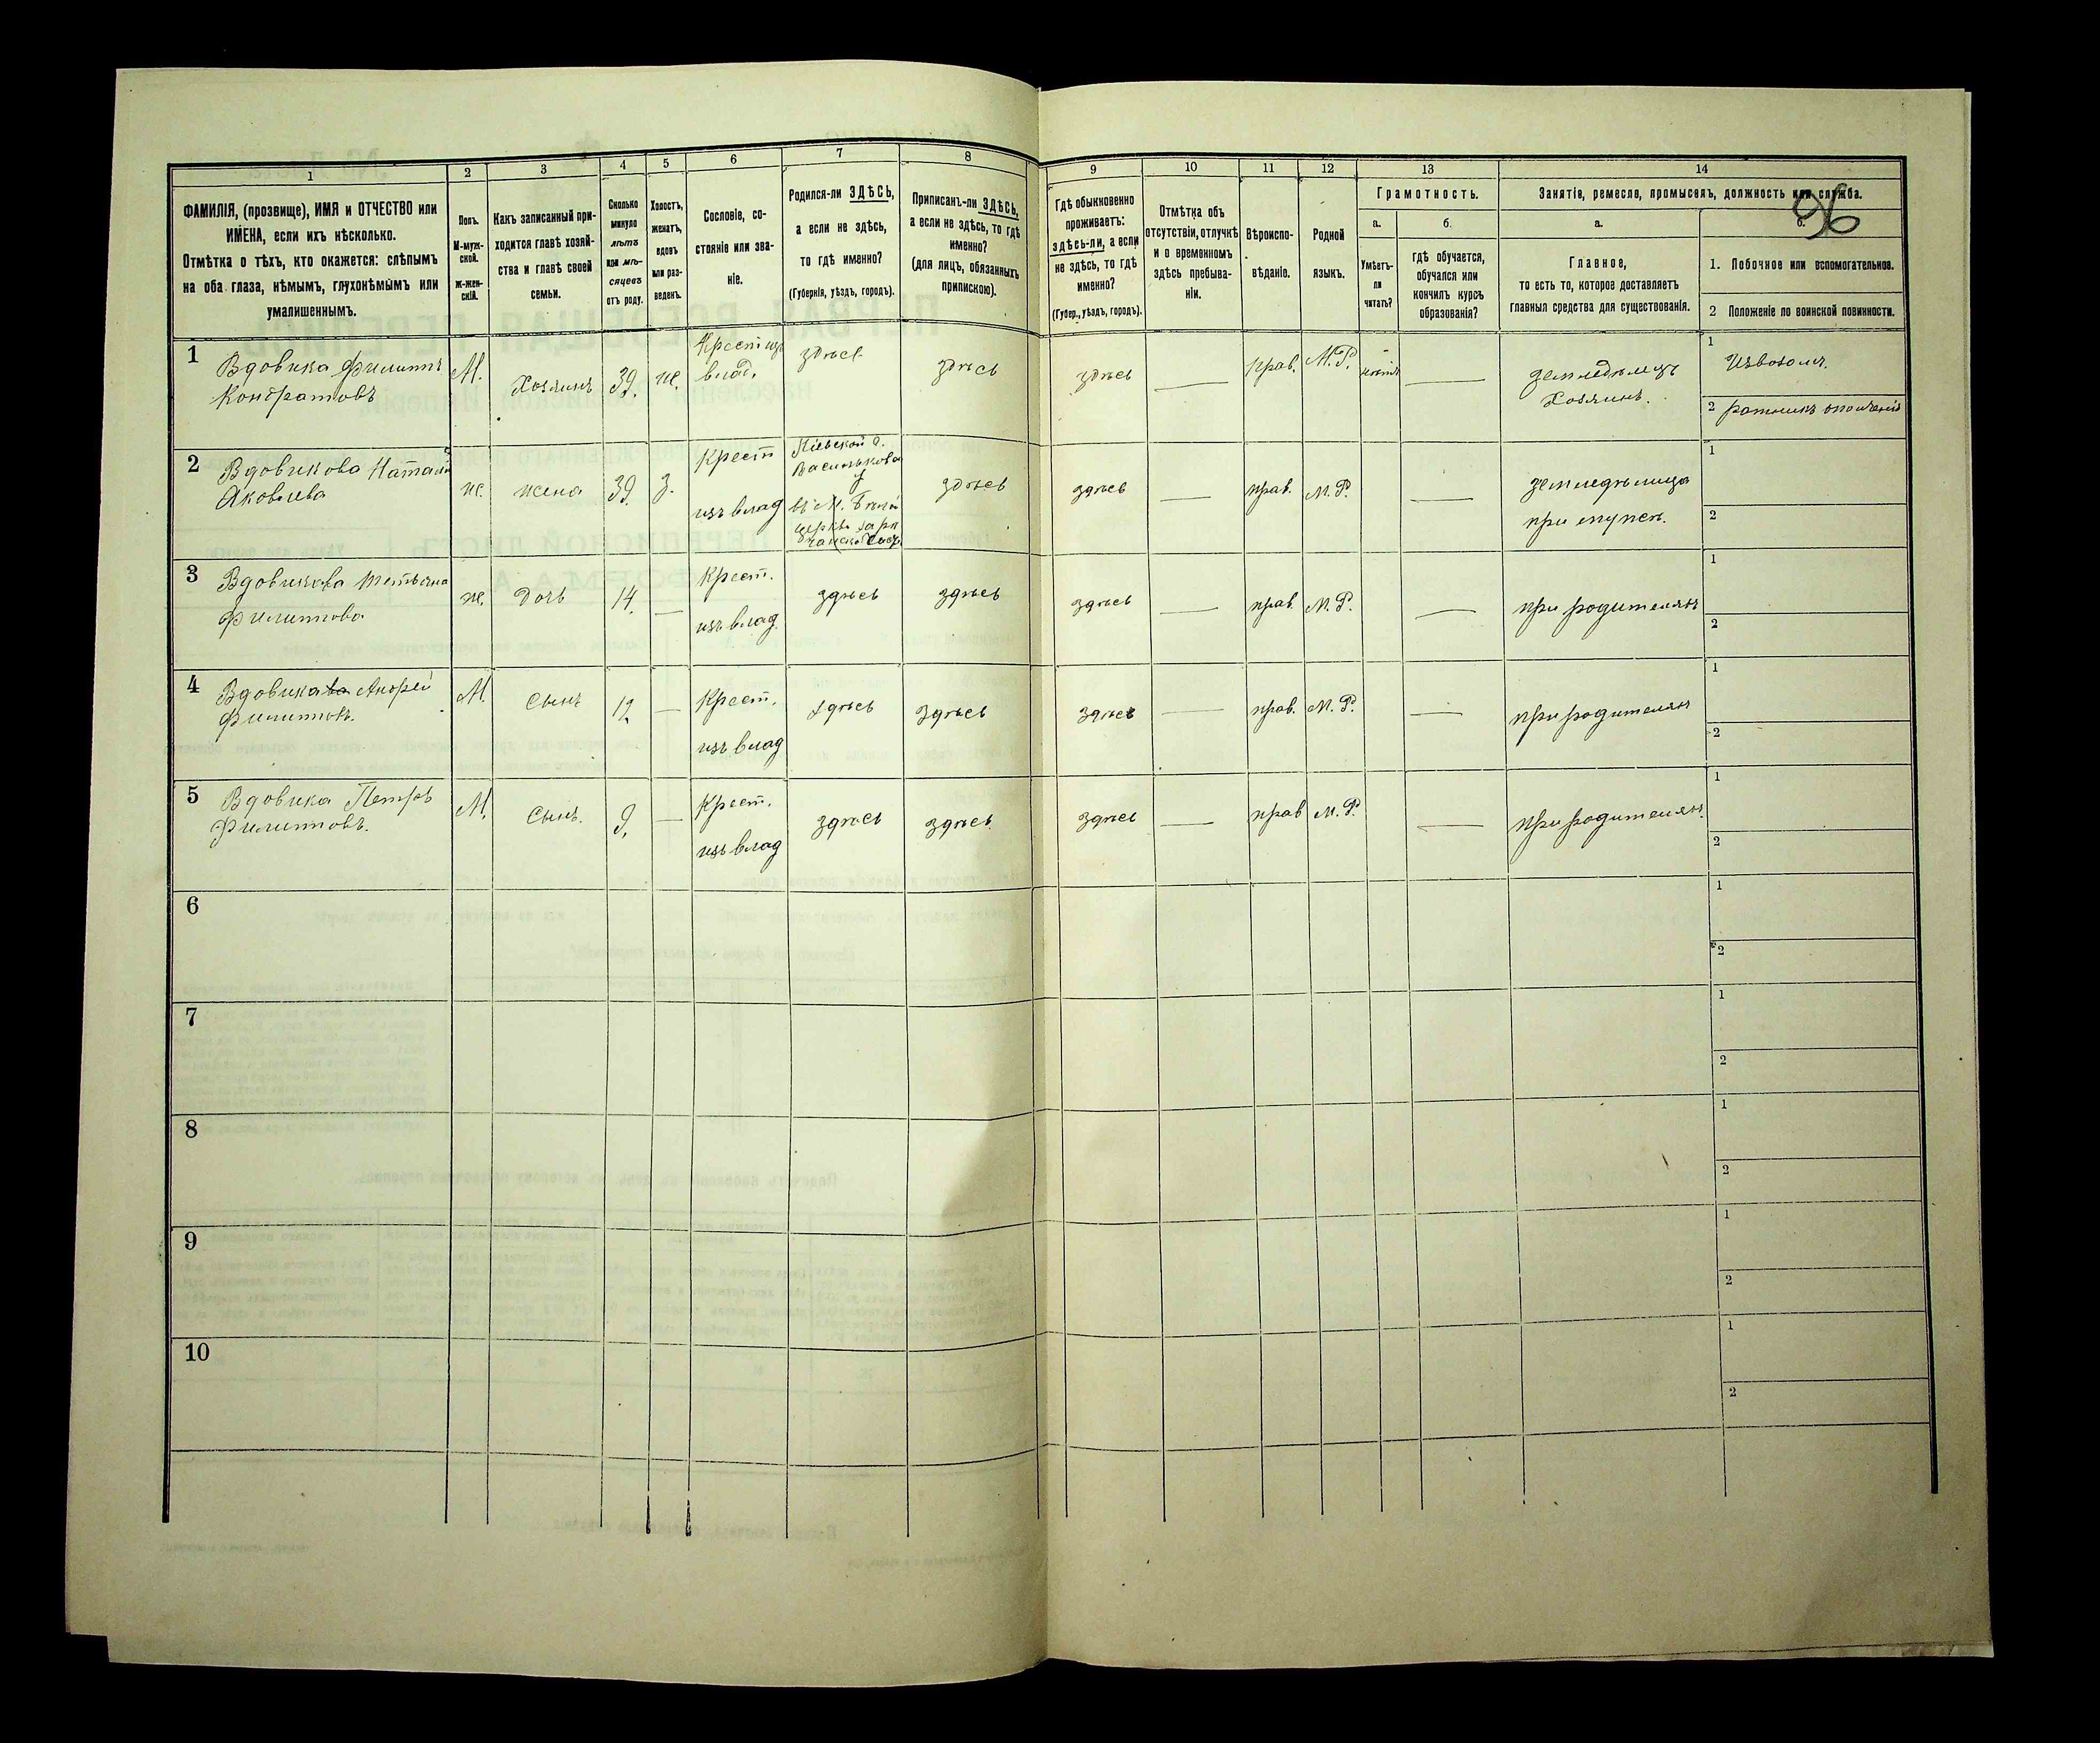 96
1
2
3
4
5
6
7
8
9
10
11
12
13
14
ФАМИЛІЯ, (прозвище), ИМЯ и ОТЧЕСТВО или
ИМЕНА, если ихъ нѣсколько.
Отмѣтка о тѣхъ, кто окажется: слѣпымъ
на оба глаза, нѣмымъ, глухонѣмымъ или
умалишеннымъ.
Полъ.
М-муж-
ской.
ж-жен-
скій.
Какъ записанный при-
ходится главѣ хозяй-
ства и главѣ своей
семьи.
Сколько
минуло
лѣтъ
или мѣ-
сяцевъ
отъ роду.
Холостъ,
женатъ,
вдовъ
или раз-
веденъ.
Сословіе, со-
стояніе или зва-
ніе.
Родился-ли ЗДѢСЬ,
а если не здѣсь,
то гдѣ именно?
(Губернія, уѣздъ, городъ).
Приписанъ-ли ЗДѢСЬ,
а если не здѣсь, то гдѣ
именно?
(для лицъ, обязанныхъ
припискою).
Гдѣ обыкновенно
проживаетъ:
здѣсь-ли, а если
не здѣсь, то гдѣ
именно?
(Губер., уѣздъ, городъ).
Отмѣтка объ
отсутствіи, отлучкѣ
и о временномъ
здѣсь пребыва-
ніи.
Вѣроиспо-
вѣданіе.
Родной
языкъ.
Грамотность.
а.
Умѣетъ-
ли
читать?
б.
гдѣ обучается,
обучался или
кончилъ курсъ
образованія?
Занятіе, ремесло, промыселъ, должность или служба.
а.
Главное,
то есть то, которое доставляетъ
главныя средства для существованія.
б.
1. Побочное или вспомогательное.
2 Положеніе по воинской повинности.
1
Вдовика Филиппъ
Кондратовъ
М.
Хозяинъ
39.
ж.
Крест изъ
влад.
здѣсь
здѣсь
здѣсь
прав.
М.Р.
земледѣлецъ
Хозяинъ.
1
Извозомъ.
2 ратникъ ополченія
2
Вдовикова Наталія
Яковлева
ж.
жена
39
з.
Крест
изъ влад
Кіевской г.
Васильков
у
здѣсь
здѣсь
прав.
М.Р.
земледѣлица
при мужѣ.
1
2
3
Вдовикова Тетьяна
Филиппова
ж.
Дочь
14.
Крест.
изъ влад.
здѣсь
здѣсь
здѣсь
прав.
М.Р.
при родителяхъ
1
2
4
Вдовика Андрей
Филипповъ.
М.
Сынъ
12
Крест.
изъ влад
здѣсь
здѣсь
здѣсь
прав.
М.Р.
при родителяхъ
1
2
5
Вдовика Петръ
Филипповъ.
М.
Сынъ.
9.
Крест.
изъ влад
здѣсь
здѣсь.
здѣсь
прав
М.Р.
при родителях.
1
2
6
1
2
7
1
2
8
1
2
9
1
2
10
1
2